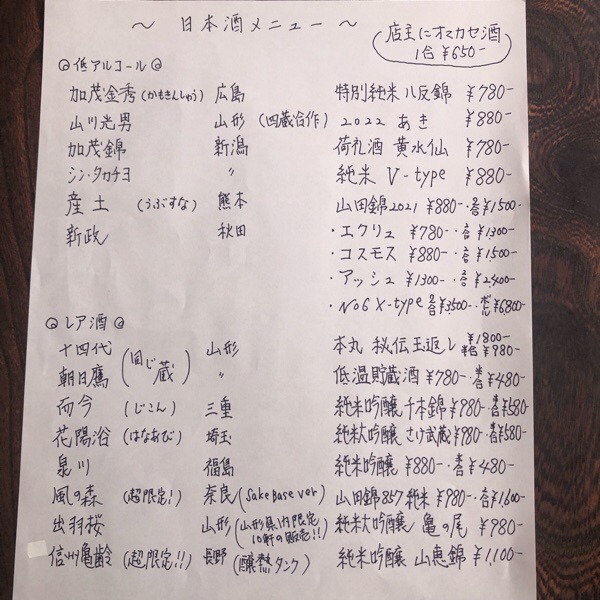 ～ 日本酒メニュー ～
店主にオマカセ酒
1合 ¥650-
◎低アルコール◎
加茂金秀(かもきんしゅう) 広島 特別純米 八反錦 ¥780-
山川光男 山形 (四蔵合作) 2022 あき ¥880-
加茂錦 新潟 荷札酒 黄水仙 ¥780-
シン・タカチヨ 〃 純米 V-type ¥880-
産土 (うぶすな) 熊本 山田錦2021 ¥880-・合¥1500-
新政 秋田 ・エクリュ ¥780-・合¥1300-
・コスモス ¥880-・合¥1,500-
・アッシュ ¥1300-・合¥2,400-
・No6 X-type ¥3500-・¥6,800-
◎レア酒◎
十四代 (同じ蔵) 山形 本丸 秘伝玉返し ¥1800- 半合¥980-
朝日鷹 〃 低温貯蔵酒 ¥780-・半合¥480-
而今 (じこん) 三重 純米吟醸 千本錦 ¥980-・半合¥580-
花陽浴 (はなあび) 埼玉 純米大吟醸 さけ武蔵 ¥980-・半合¥580-
泉川 福島 純米吟醸 ¥880-・半合¥480-
風の森 (超限定!) 奈良 (Sake Base ver) 山田錦857 純米 ¥980-・合¥1,600-
出羽桜 山形 (山形県内限定 10軒の販売!!) 純米大吟醸 亀の尾 ¥980-
信州亀齢 (超限定!!) 長野 (醸熱タンク) 純米吟醸 山恵錦 ¥1,100-